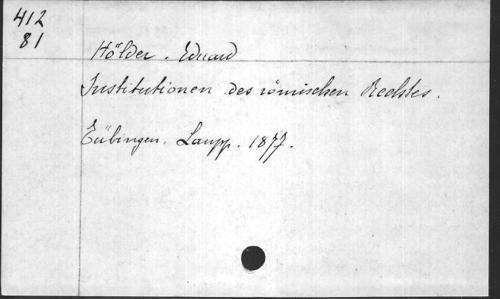 412
81
Hölder. Eduard
Institutionen des römischen Rechtes.
Tübingen. Laupp. 1877.